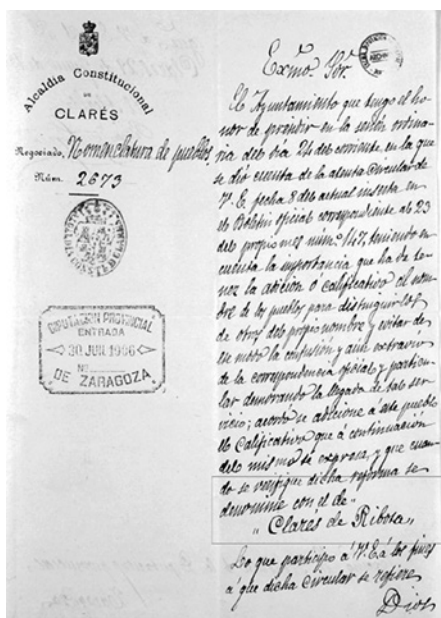 Alcaldia Constitucional
DE
CLARÉS
Negociado, Nomenclatura de pueblos
Núm. 2673
DIPUTACIÓN PROVINCIAL
ENTRADA
30 JUN. 1906
Nº
DE ZARAGOZA
Exmo. Sor.
El Ayuntamiento que tengo el ho-
nor de presidir en la sesión ordina-
ria del día 24 del corriente en la que
se dió cuenta de la atenta Circular de
V. E. fecha 8 del actual inserta en
el Boletin oficial correspondiente al 23
del propio mes núm.º 147, teniendo en
cuenta la importancia que ha de te-
ner la adición o calificativo al nom-
bre de los pueblos para distinguirlos
de otros del propio nombre y evitar de
ese modo la confusión y aún extravio
de la correspondencia oficial y particu-
lar demorando la llegada de tal ser-
vicio; acordó se adicione á este pueblo
el Calificativo que á continuación
del mismo se expresa, y que cuan-
do se verifique dicha reforma se
denomine con el de"
"Clarés de Ribota„
Lo que participo á V. E. á los fines
á que dicha Circular se refiere
Dios